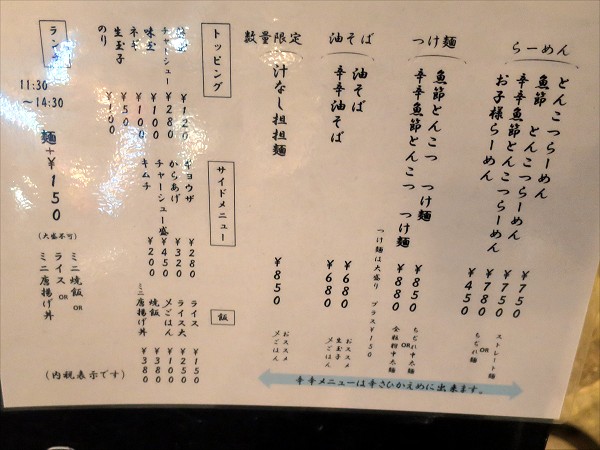 らーめん
とんこつらーめん ¥750
魚節 とんこつらーめん ¥750
辛辛魚節とんこつらーめん ¥780
お子様らーめん ¥450
ストレート麺
OR
ちぢれ麺
つけ麺
魚節とんこつ つけ麺 ¥850
辛辛魚節とんこつ つけ麺 ¥880
ちぢれ中太麺
OR
全粒粉中太麺
つけ麺は大盛り プラス¥150
油そば
油そば ¥680
辛辛油そば ¥680
おススメ
生玉子
〆ごはん
数量限定
汁なし担担麺 ¥850
おススメ
〆ごはん
辛辛メニューは辛さひかえめに出来ます。
トッピング
¥120
チャーシュー ¥280
味玉 ¥100
ネギ ¥100
生玉子 ¥50
のり ¥100
サイドメニュー
ギョウザ ¥280
からあげ ¥320
チャーシュー盛 ¥450
キムチ ¥200
飯
ライス ¥150
ライス大 ¥250
〆ごはん ¥100
焼飯 ¥380
ミニ唐揚げ丼 ¥380
ランチ
11:30
～14:30
麺+¥150
(大盛不可)
ミニ焼飯 OR
ライス OR
ミニ唐揚げ丼
(内税表示です)